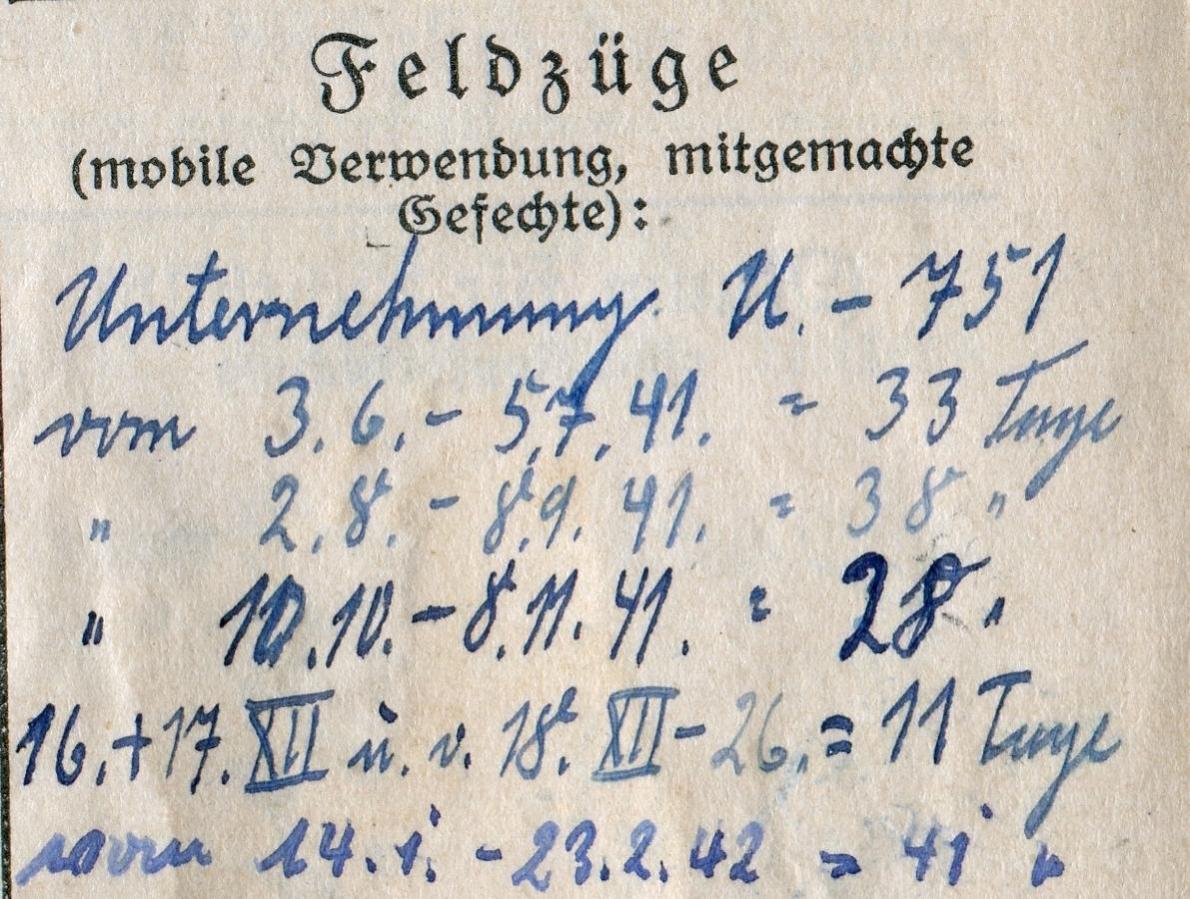 Feldzüge
(mobile Verwendung, mitgemachte
Gefechte):
Unternehmung U.-751
vom 3.6.- 5.7.41. = 33 Tage
" 2.8.- 8.9.41. = 38 "
" 10.10.- 8.11.41. = 28 "
16.+17.XII u. v. 18.XII-26.= 11 Tage
vom 14.1. - 23.2.42 = 41 "